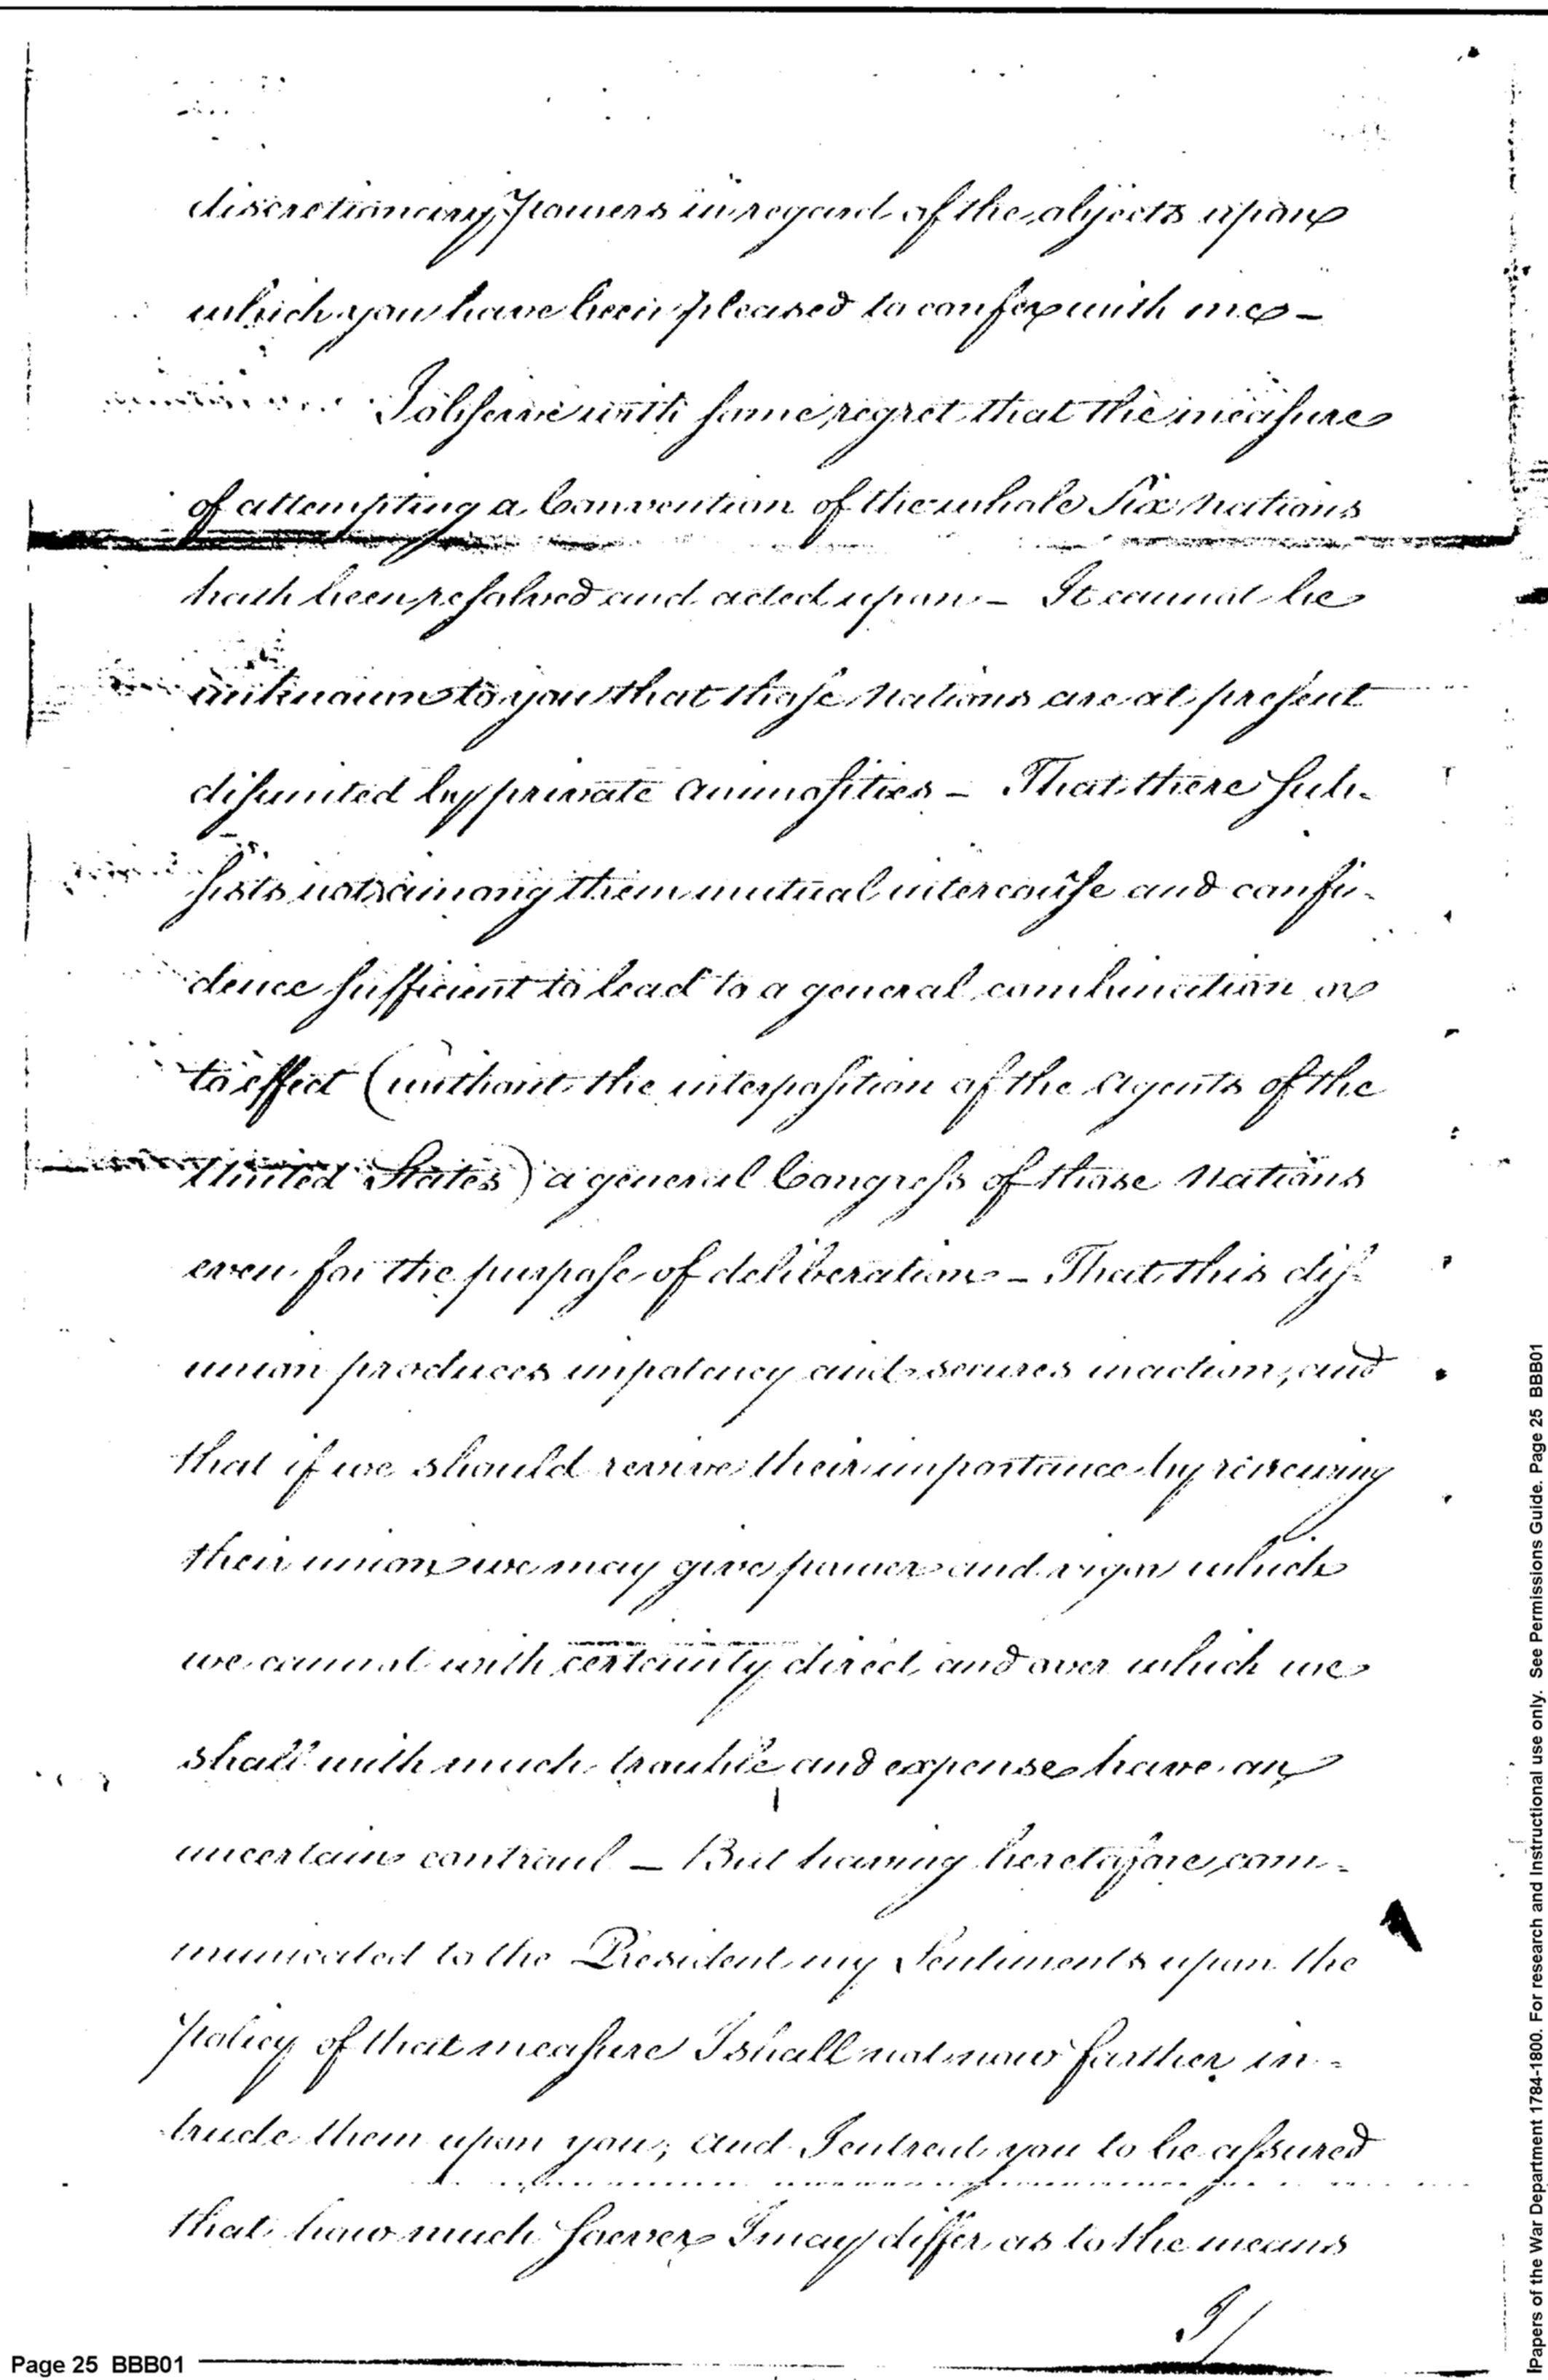 discretionary powers in regard of the objects upon
which you have been pleased to confer with me –
I observe with some regret that the measure
of attempting a Convention of the whole Six Nations
hath been resolved and acted upon – It cannot be
unknown to you that those Nations are at present
disunited by private animosities – That there sub-
sists not among them mutual intercourse and confi-
dence sufficient to lead to a general combination or
to effect (without the interposition of the Agents of the
United States) a general Congress of those Nations
even for the purpose of deliberation – That this dis-
union produces impotency and secures inaction, and
that if we should revive their importance by renewing
their union we may give power and vigor which
we cannot with certainty direct and over which we
shall with much trouble and expense have an
uncertain controul – But having heretofore com-
municated to the President my Sentiments upon the
policy of that measure I shall not now farther in-
trude them upon you; and I entreat you to be assured
that how much soever I may differ as to the means
I/
Page 25 BBB01
Papers of the War Department 1784-1800. For research and Instructional use only. See Permissions Guide. Page 25 BBB01